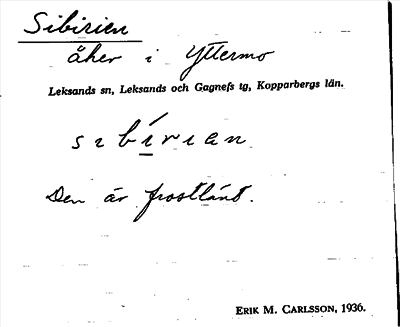 Sibirien
åker i Yttermo
Leksands sn, Leksands och Gagnefs tg, Kopparbergs län.
sıbí̱rıan
Den är frostlänt.
ERIK M. CARLSSON, 1936.